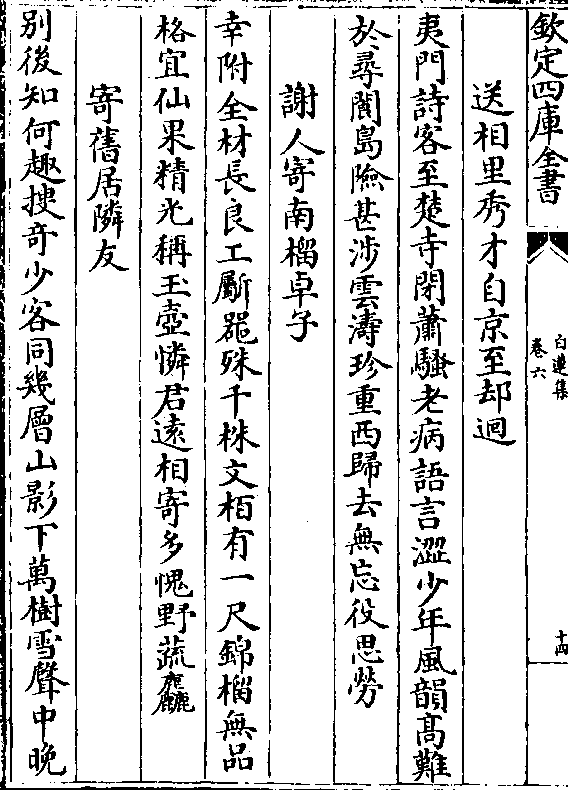 欽定四庫全書
白蓮集
卷六
十四
送相里秀才自京至却迴
夷門詩客至楚寺閉蕭騷老病語言澀少年風韻髙難
於尋閬島險甚涉雲濤珍重西歸去無忘役思勞
謝人寄南榴卓子
幸附全材長良工斸器殊千株文栢有一尺錦榴無品
格宜仙果精光稱玉壺憐君逺相寄多愧野蔬麤
寄舊居隣友
别後知何趣搜奇少客同幾層山影下萬樹雪聲中晩